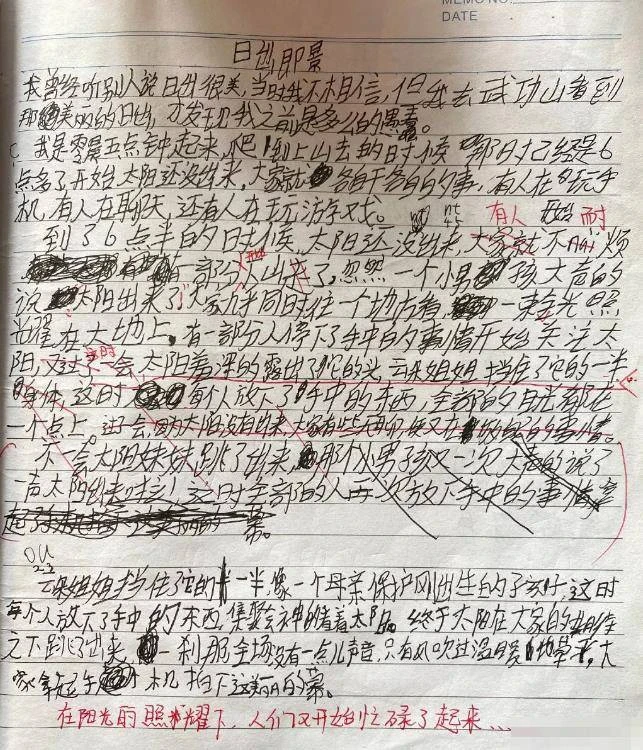 MEMO NO.
DATE
日出即景
我曾经听别人说日出很美,当时我不相信,但我去武功山看到
那美丽的日出,才发现我之前是多么的愚蠢。
我是零晨五点钟起来,爬到上山去的时候那时已经是6
点多了开始太阳还没出来,大家就各自干各自的事,有人在玩手
机,有人在聊天,还有人在玩游戏。
有人 开始 耐
到了6点半的时候,太阳还没出来,大家就不耐烦
有一部分人出来了,忽然一个小男孩,大声的
说太阳出来了,大家几乎同时往一个地方看,一束金光照
耀在大地上,有一部分人停下了手中的事情开始关注太
阳,又过一会太阳羞涩的露出了它的头,云朵姐姐挡住了它的一半
身体,这时每个人放下了手中的东西,全部的目光都在
一个点上,过一会,太阳没有出来,大家有些
不一会太阳妹妹跳了出来,那个小男孩又一次大声的说了
一声太阳出来啦!这时全部的人再次放下手中的事情拿
幕。
云朵姐姐挡住它的一半像一个母亲保护刚出生的孩子,这时
每个人放下了手中的东西,集聚会神的看着太阳。终于太阳在大家的
之下跳了出来一刹那全场没有一点儿声音,只有风吹过温暖地草,大
家拿起手机拍下这美丽的幕。
在阳光的照耀下,人们又开始忙碌了起来...